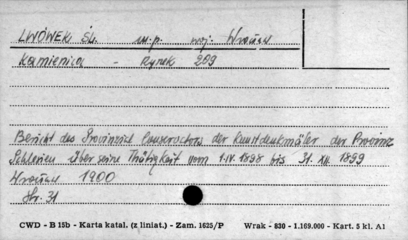 LWÓWEK ŚL. m-p. woj. Wrocław
Kamienica - Rynek 209
Bericht des Provinzial Conservators der Kunstdenkmäler der Provinz
Schlesien über seine Thätigkeit vom 1.IV.1898 bis 31. XII. 1899
Wrocław 1900
Str. 31
CWD - B 15b - Karta katal. (z liniat.) - Zam. 1625/P Wrak - 830 - 1.169.000 - Kart. 5 kl. A1